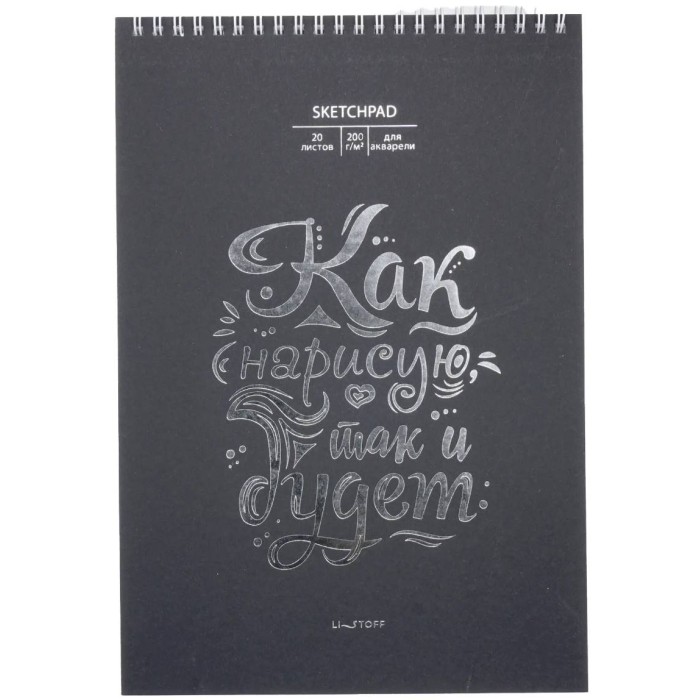 SKETCHPAD
20 листов 200 г/м² для акварели
Как
нарисую,
так и
будет
LISTOFF